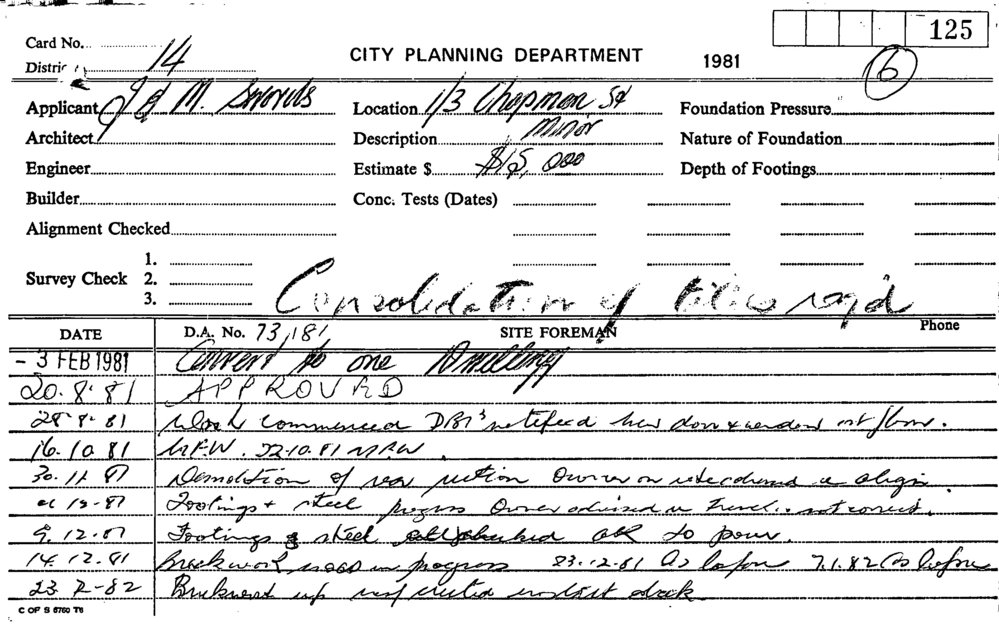 125
Card No.
District 14
CITY PLANNING DEPARTMENT 1981
6
Applicant J & M. Swords
Location 1/3 Chapman St
Foundation Pressure
Architect
Description Minor
Nature of Foundation
Engineer
Estimate $ $15,000
Depth of Footings
Builder
Conc. Tests (Dates)
Alignment Checked
Survey Check 1.
2.
3.
Consolidation of titles reqd
DATE D.A. No. 73/81 SITE FOREMAN Phone
- 3 FEB 1981 Convert to one Dwelling
20.8.81 APPROVED
28.8.81 Work commenced new door & window
16.10.81 N.F.W. 22.10.81 N.F.W.
30.11.81 Demolition of rear section Owner on site
Footings & steel progress Owner advised not correct.
9.12.81 Footings & steel checked OK to pour.
14.12.81 Brickwork in progress 23.12.81 As before 7.1.82 As before
23.2.82 Brickwork up
C OF S 6760 T6